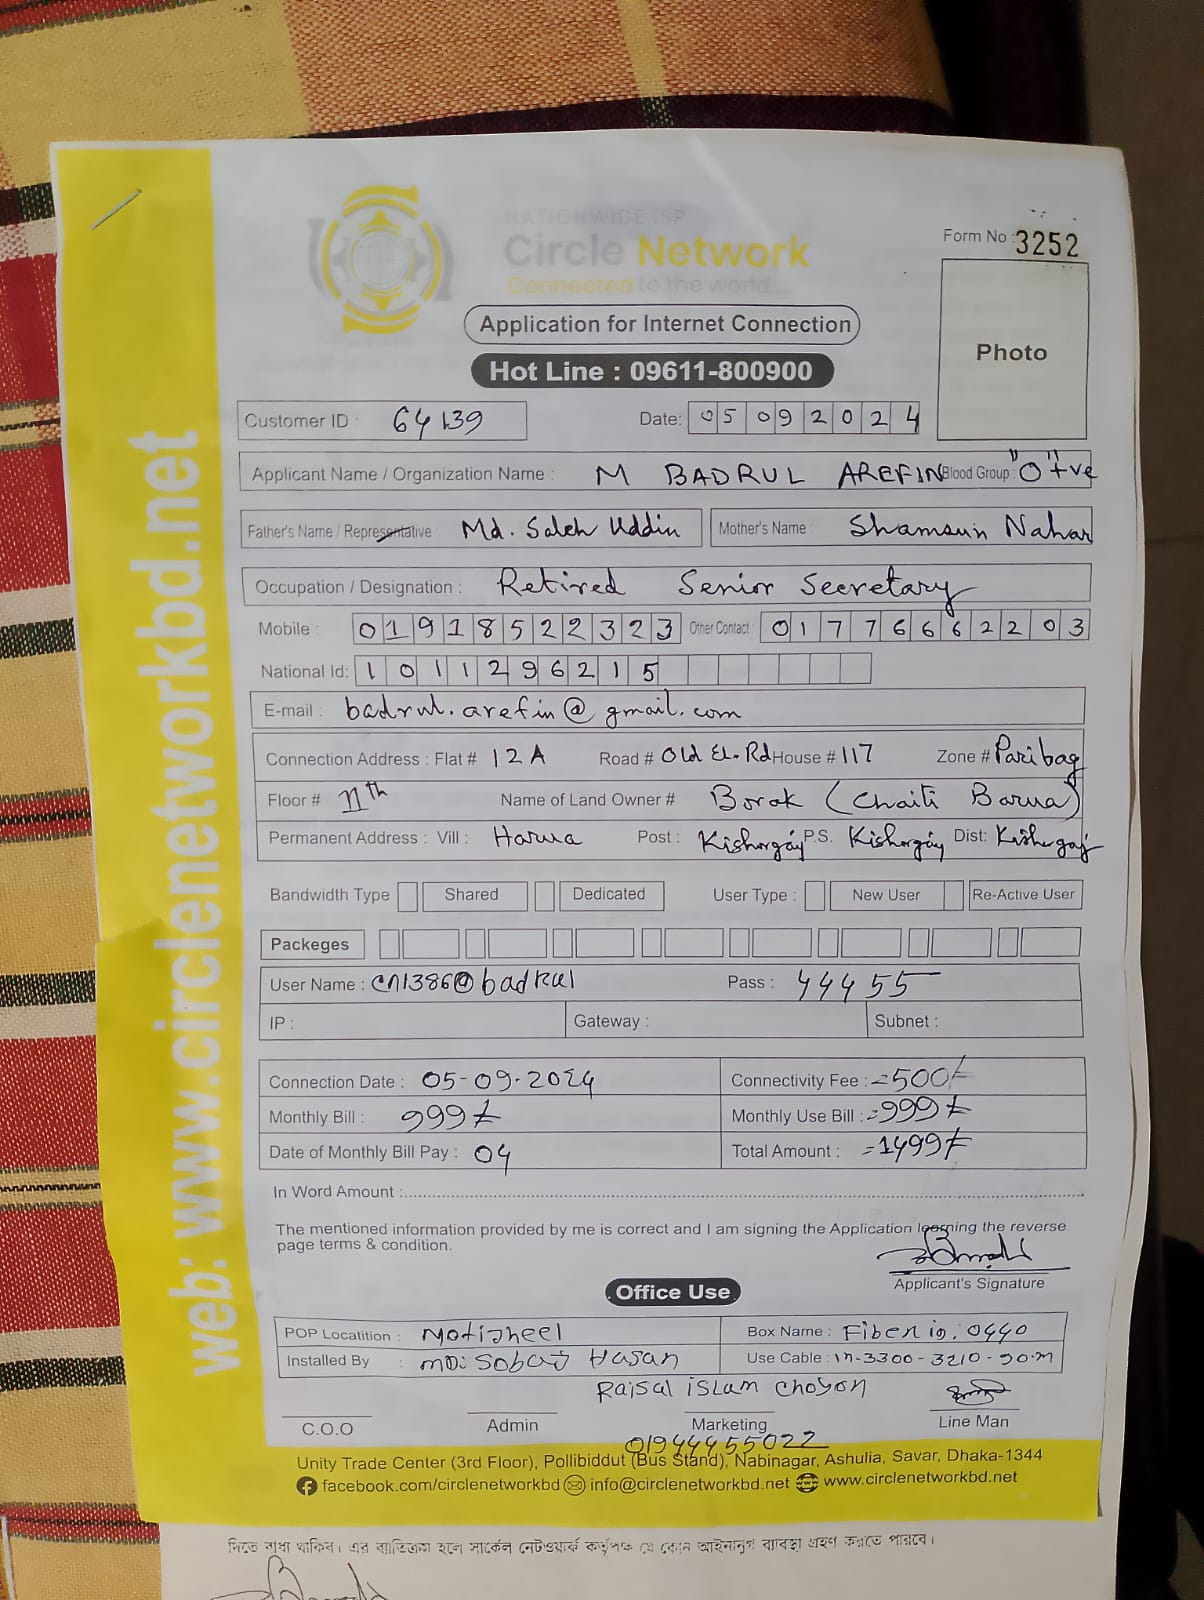 web: www.circlenetworkbd.net
NATIONWIDE ISP
Circle Network
Connected to the world...
Form No : 3252
Application for Internet Connection
Photo
Hot Line : 09611-800900
Customer ID : 64139
Date: 05 09 2024
Applicant Name / Organization Name : M BADRUL AREFIN Blood Group : "O"+ve
Father's Name / Representative Md. Saleh Uddin Mother's Name : Shamsun Nahar
Occupation / Designation : Retired Senior Secretary
Mobile : 01918522323 Other Contact : 01776662203
National Id: 1011296215
E-mail : badrul.arefin@gmail.com
Connection Address : Flat # 12A Road # Old El. Rd House # 117 Zone # Paribag
Floor # 11th Name of Land Owner # Borak (Chaiti Barua)
Permanent Address : Vill : Harua Post : Kishorgonj P.S. Kishorgonj Dist: Kishorgonj
Bandwidth Type Shared Dedicated User Type : New User Re-Active User
Packeges
User Name : cn1386@badrul Pass : 44455
IP : Gateway : Subnet :
Connection Date : 05-09-2024 Connectivity Fee : =500/-
Monthly Bill : 999/- Monthly Use Bill : =999/-
Date of Monthly Bill Pay : 04 Total Amount : =1499/-
In Word Amount :
The mentioned information provided by me is correct and I am signing the Application learning the reverse
page terms & condition.
Applicant's Signature
Office Use
POP Locatition : Motijheel Box Name : Fiber ig: 0440
Installed By : MD: Sobuj Hasan Use Cable : in-3300-3210-90.m
Raisal islam choyon
C.O.O Admin Marketing Line Man
01944455022
Unity Trade Center (3rd Floor), Pollibiddut (Bus Stand), Nabinagar, Ashulia, Savar, Dhaka-1344
facebook.com/circlenetworkbd info@circlenetworkbd.net www.circlenetworkbd.net
দিতে বাধ্য থাকিব। এর ব্যতিক্রম হলে সার্কেল নেটওয়ার্ক কর্তৃপক্ষ যে কোন আইনানুগ ব্যবস্থা গ্রহণ করতে পারবে।